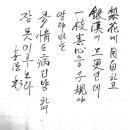 梨花에 月白하고
銀漢이 三更인제
一枝春心을 子規야
알랴마는
多情도 病인양 하여
잠 못 이루어 하노라